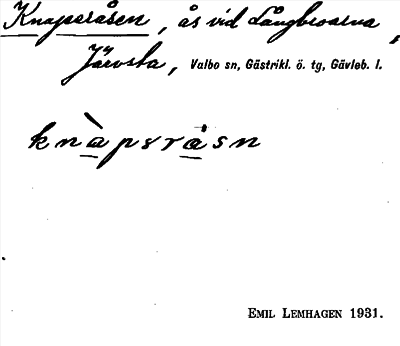 Knaperåsen, ås vid Långbroarna,
Järvsta, Valbo sn, Gästrikl. ö. tg, Gävleb. l.
knàpsråsn
EMIL LEMHAGEN 1931.